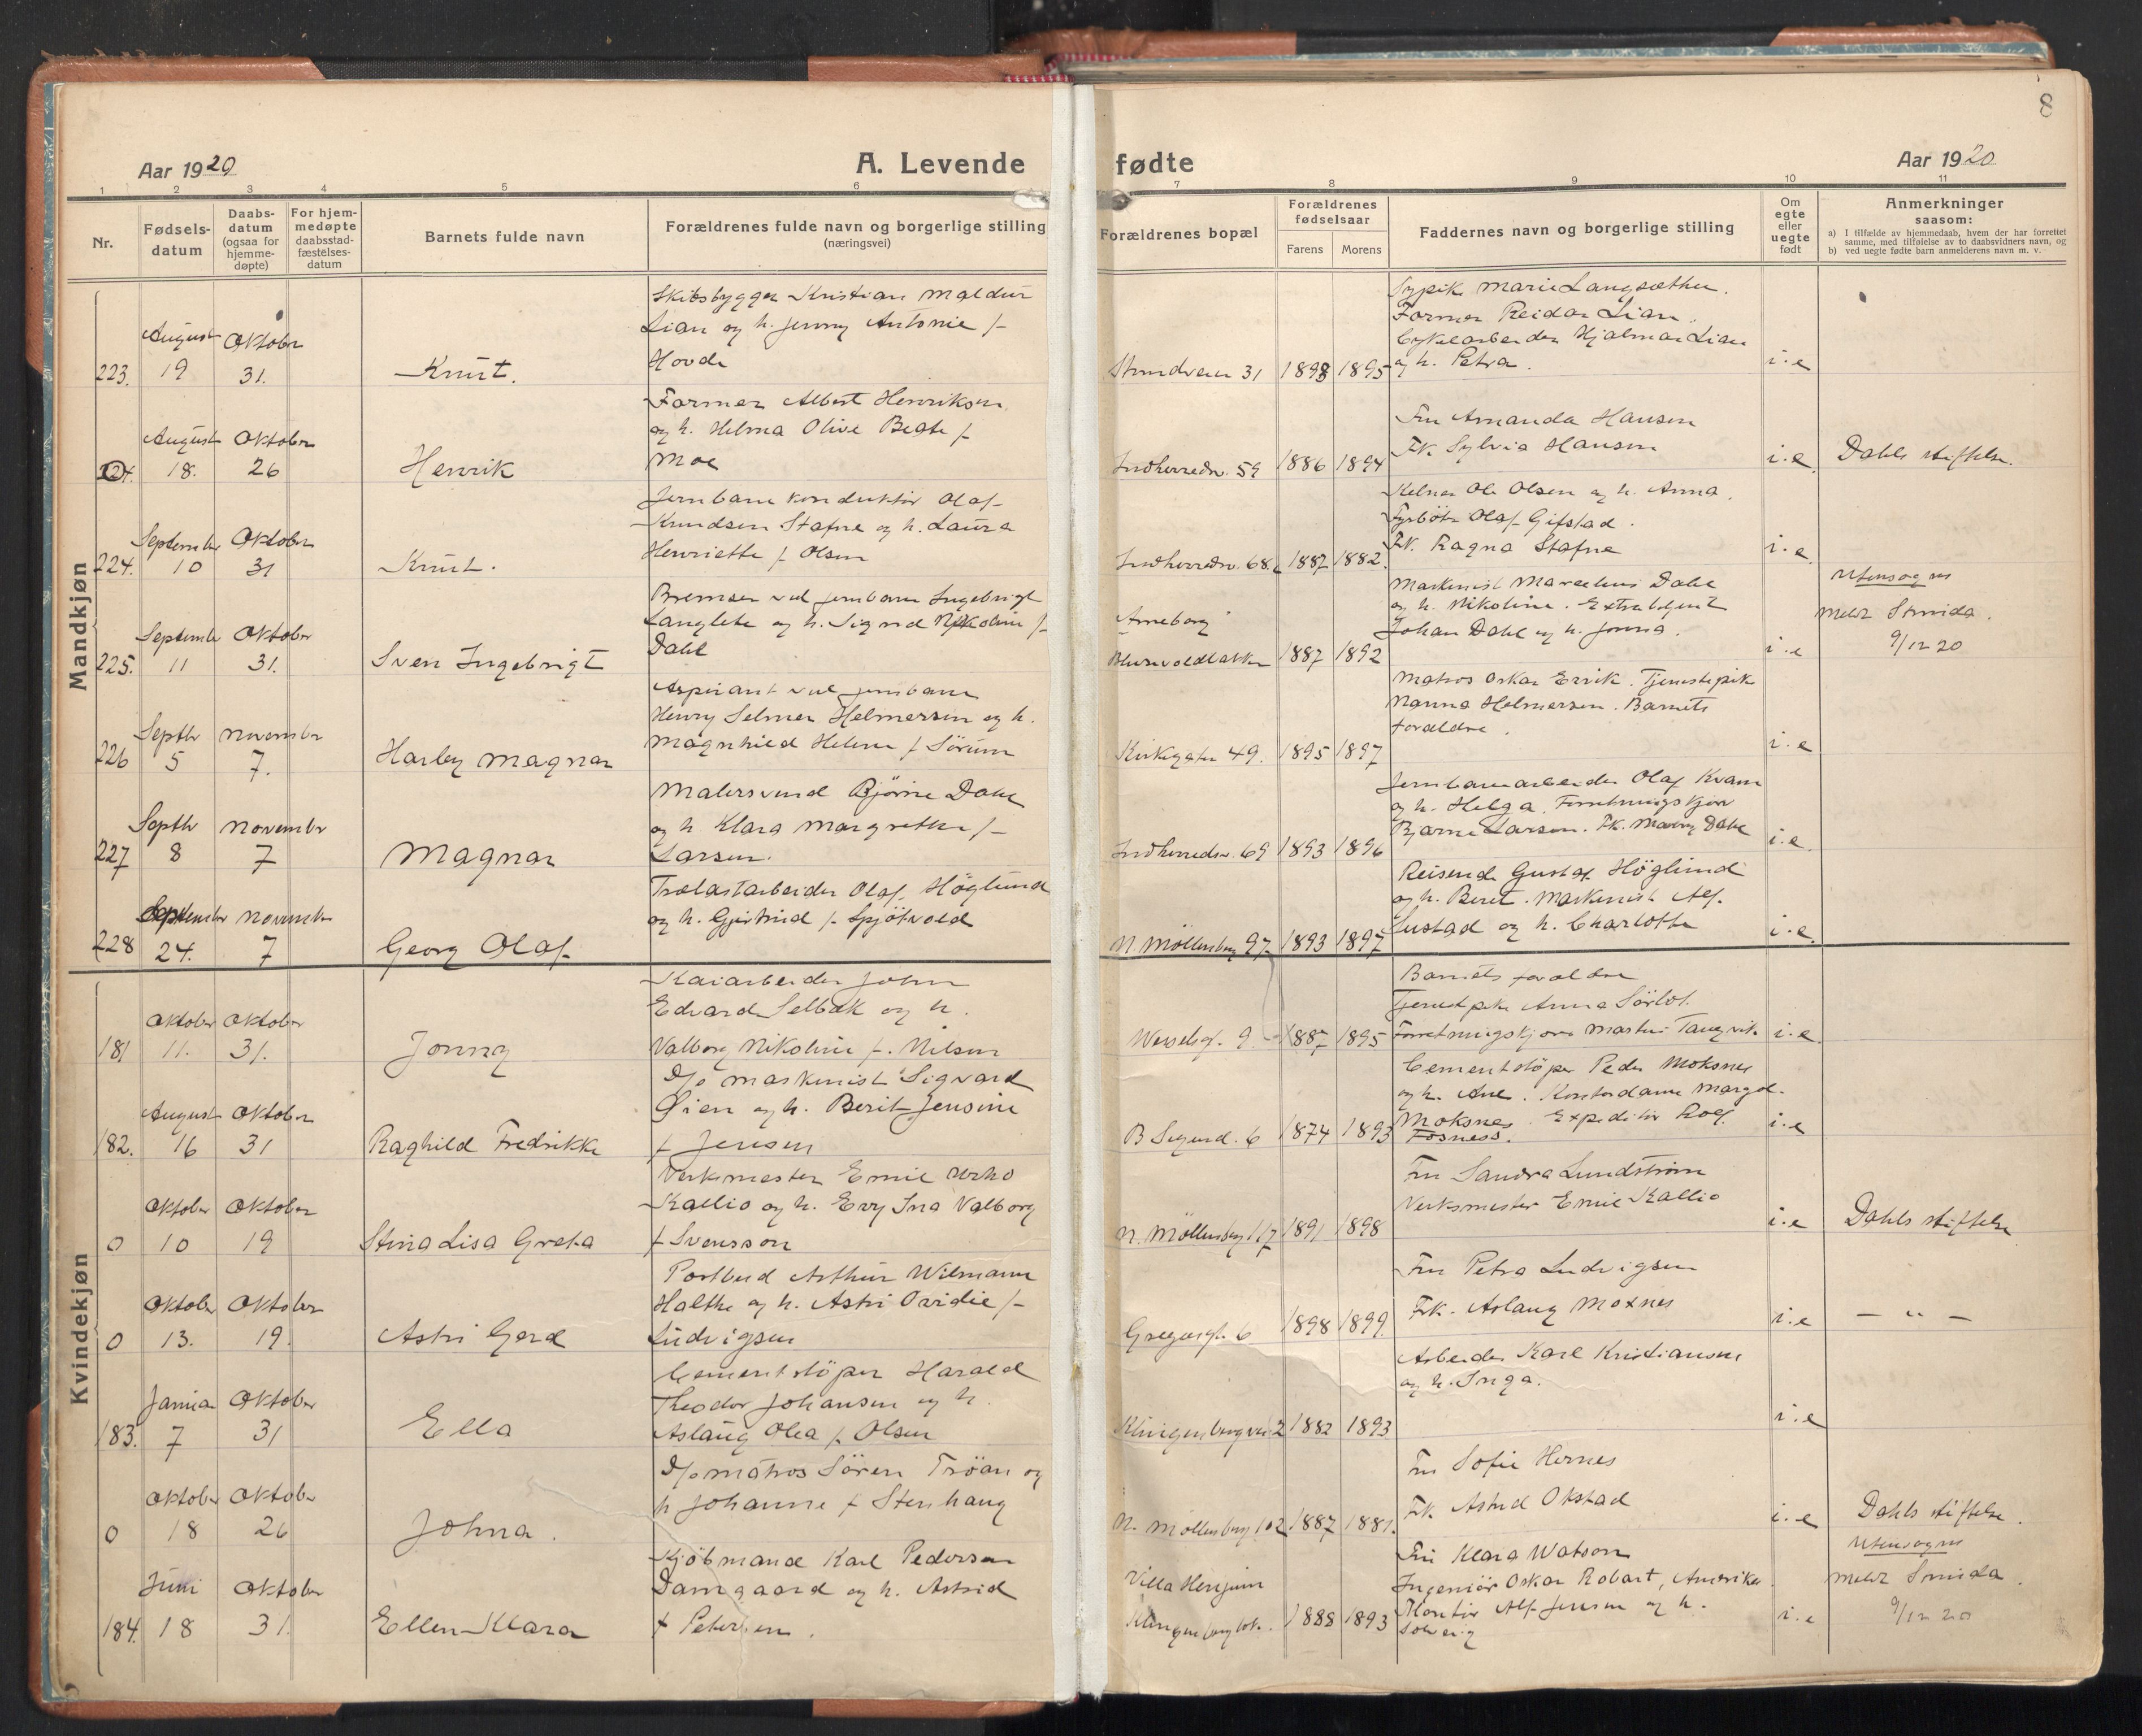 8
Aar 1920
A. Levende fødte
Aar 1920
1 2 3 4 5 6 7 8 9 10 11
Nr.
Fødsels-
datum
Daabs-
datum
(ogsaa for
hjemme-
døpte)
For hjem-
medøpte
daabsstad-
fæstelses-
datum
Barnets fulde navn
Forældrenes fulde navn og borgerlige stilling
(næringsvei)
Forældrenes bopæl
Forældrenes
fødselsaar
Farens Morens
Faddernes navn og borgerlige stilling
Om
egte
eller
uegte
født
Anmerkninger
saasom:
a) I tilfælde av hjemmedaab, hvem der har forrettet
samme, med tilføielse av to daabsvidners navn, og
b) ved uegte fødte barn anmelderens navn m. v.
Mandkjøn
223. August 19 Oktober 31. Knut.
Skibsbygger Kristian Maldur
Lian og h. Jenny Antonie f.
Hovde
Strandveien 31 1893 1895
Sypike Marie Langsæther.
Former Reidar Lian.
Cykelarbeider Hjalmar Lian
og h. Petra.
i.e
August 18. Oktober 26 Henrik
Former Albert Henriksen
og h. Helma Olive Beate f.
Moe
Indherredsv. 59 1886 1894
Fru Amanda Hansen
Frk. Sylvia Hansen
i.e. Dahls stiftelse.
224. September 10 Oktober 31 Knut.
Jernbanekonduktør Olaf
Knudsen Stafne og h. Laura
Henriette f. Olsen
Indherredsv. 68. 1887 1882.
Kelner Ole Olsen og h. Anna.
Fyrbøter Olaf Gifstad.
Frk. Ragna Stafne
i.e.
225. September 11 Oktober 31. Sven Ingebrigt
Bremser ved jernbanen Ingebrigt
Langlete og h. Sigrid Nikoline f.
Dahl
Arneborg
1887 1892
Maskinist Marselius Dahl
og h. Nikoline. Extrabetjent
Johan Dahl og h. Jonna.
i.e
Utensogns
Meldt Strinda.
9/12 20
226 Septbr 5 November 7. Harley Magnar
Aspirant ved jernbanen
Henry Selmer Helmersen og h.
Magnhild Helene f. Sørum
Kirkegaten 49. 1895 1897
Matros Oskar Ervik. Tjenestepike
Nanna Helmersen. Barnets
foraldre.
i.e
227 Septbr 8 November 7 Magnar
Malersvend Bjørne Dahl
og h Klara Margrethe f.
Larsen.
Indherredsv. 69 1893 1896
Jernbanearbeider Olaf Kvam
og h. Helga. Forretningskjører
Bjarne Larsen. Frk. Dahl
i.e.
228 September 24. November 7 Georg Olaf
Trælastarbeider Olaf Höglund
og h. Gjertrud f. Spjötvold
N Möllenberg 97 1893 1897
Reisende Gustaf Höglund
og h. Beret. Maskinist Alf.
Sustad og h. Charlotte
i.e.
Kvindekjøn
181 Oktober 11. Oktober 31. Jonny
Kaiarbeider John
Edvard Selbæk og h.
Valborg Nikoline f. Nilsen
Wesselsgt. 9. 1887 1895
Barnets foraldre
Tjenestpike Anna Sörlot.
Forretningskjører Martin Tangvik
i.e.
182. August 16 Oktober 31 Raghild Fredrikke
D/s maskinist Sigvard
Øien og h. Berit Jensine
f Jensen
B Sigurd. 6 1874 1893
Cementstöper Peder Moksnes
og h. Ane. Kontordame Margot
Moksnes. Expeditör Rolf
Fosness.
i.e
0 Oktober 10 Oktober 19 Stina Lisa Greta
Verksmester Emil Urho
Kallio og h. Ery Ina Valborg
f Svensson
N. Möllenberg 117 1891 1898
Fru Sandra Lundström
Verksmester Emil Kallio
i.e Dahls stiftelse
0 Oktober 13. Oktober 19. Astri Gerd
Postbud Arthur Wilmann
Halthe og h. Astri Ovidie f.
Ludvigsen
Gregusgt. 6 1898 1899.
Fru Petra Ludvigsen
Frk. Aslaug Moxnes
i.e — " —
183. Januar 7 Oktober 31 Ella
Cementstöper Harald
Theodor Johansen og h.
Aslaug Olea f. Olsen
Klingenbergvei 2 1882 1893
Arbeider Karl Kristiansen
og h. Inga.
i.e
0 Oktober 18 Oktober 26 Johna.
D/s matros Sören Tröan og
h Johanne f Stenhaug
N. Möllenberg 102 1887 1881.
Fru Sofie Hernes
Frk. Astrid Okstad
i.e Dahls stiftelse.
184. Juni 18 Oktober 31. Ellen Klara
Kjöbmand Karl Pedersen
Damgaard og h. Astrid
f Petersen.
Villa Henjum
1888 1893
Fru Klara Watson
Ingeniör Oskar Robart, Amerika.
Montör Alf Jensen og h.
Solveig
i.e
Utensogns
Meldt Strinda.
9/12 20